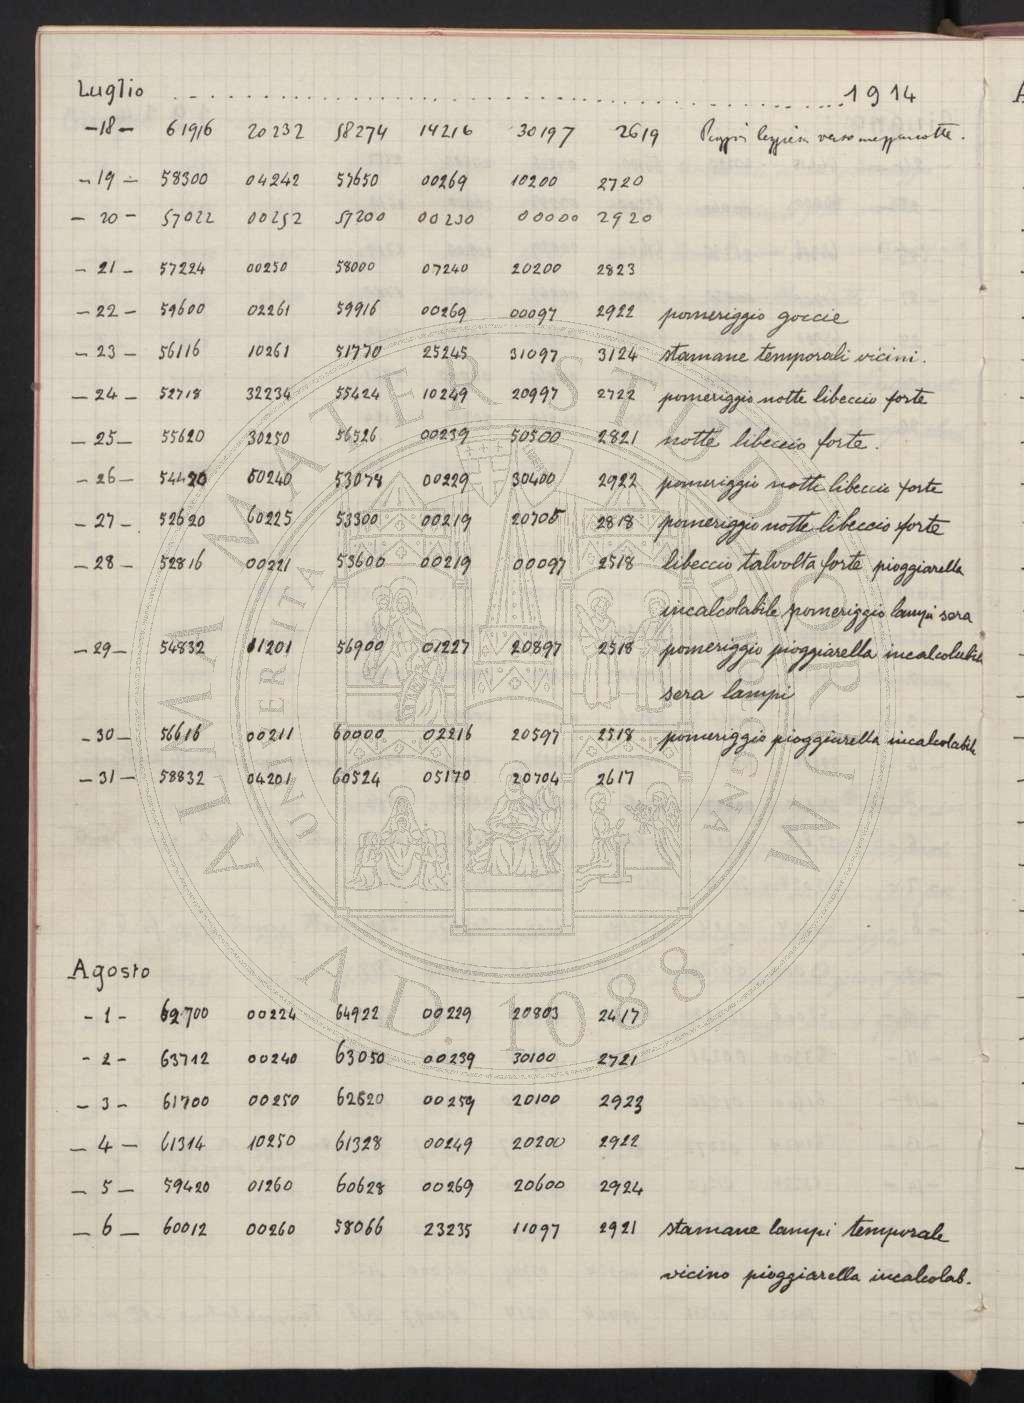 Luglio ........................................ 1914
-18- 61916 20232 58274 14216 30197 2619 verso mezzanotte.
-19- 58300 04242 57650 00269 10200 2720
-20- 57022 00252 57200 00230 00000 2920
-21- 57224 00250 58000 07240 20200 2823
-22- 59600 02261 59916 00269 00097 2922 pomeriggio goccie
-23- 56116 10261 51770 25245 31097 3124 stamane temporali vicini.
-24- 52718 32234 55424 10249 20997 2722 pomeriggio notte libeccio forte
-25- 55620 30250 56526 00239 50500 2821 notte libeccio forte.
-26- 54420 60240 53078 00229 30400 2922 pomeriggio notte libeccio forte
-27- 52620 60225 53300 00219 20705 2818 pomeriggio notte libeccio forte
-28- 52816 00221 53600 00219 00097 2518 libeccio talvolta forte pioggiarella
incalcolabile pomeriggio lampi sera
-29- 54832 11201 56900 01227 20897 2518 pomeriggio pioggiarella incalcolabile
sera lampi
-30- 56616 00211 60000 02216 20597 2518 pomeriggio pioggiarella incalcolabile
-31- 58832 04201 60524 05170 20704 2617
Agosto
-1- 62700 00224 64922 00229 20803 2417
-2- 63712 00240 63050 00239 30100 2721
-3- 61700 00250 62620 00259 20100 2923
-4- 61314 10250 61328 00249 20200 2922
-5- 59420 01260 60628 00269 20600 2924
-6- 60012 00260 58066 23235 11097 2921 stamane lampi temporale
vicino pioggiarella incalcolab.
ALMA MATER STUDIORUM
UNIVERSITA
A.D. 1088